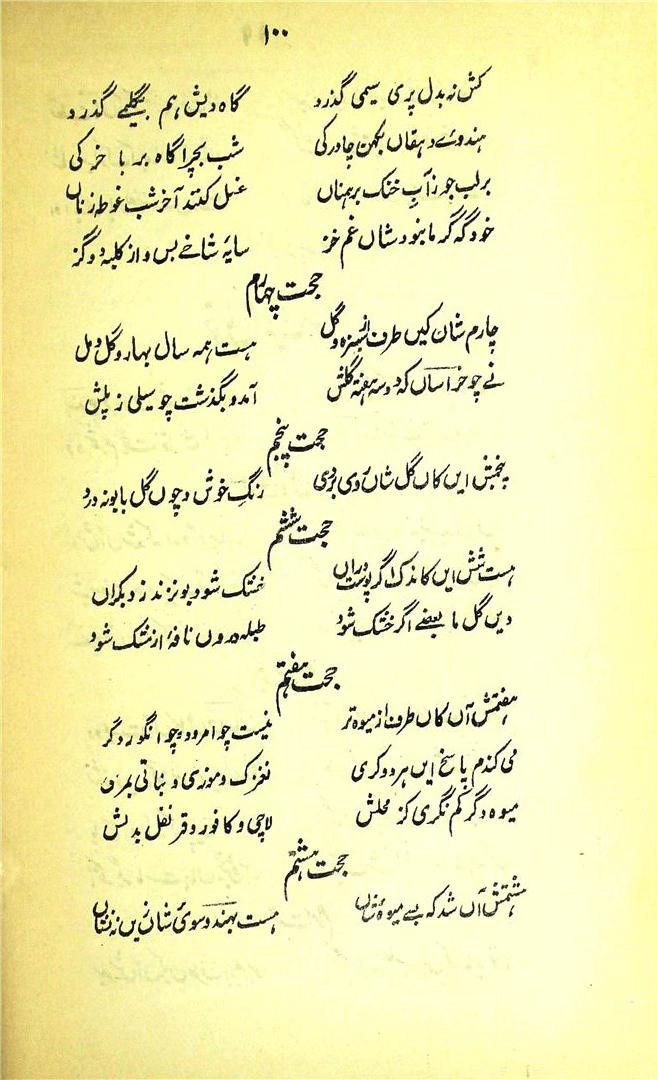 ۱۰۰
کش نه بدل پری سیمی گذرد گاه دیش هم بگلیمے گذرد
هندوے دهقاں بکهن چادرکی شب بچراگاه بر با خرکی
برلب جو ز آبِ خنک برهمناں غسل کنند آخر شب غوطه زناں
خود گه گرما نبود شاں غم خز سایهٔ شاخے بس و از کلبه دو گز
حجت چهارم
چارم شان کیں طرف از سبزه و گل هست همه سال بهار و گل و مل
نے چو خراساں که دو سه هفته گلش آمد و بگذشت چو سیلی ز پلش
حجت پنجم
پنجمش ایں کاں گل شاں روی رنگِ خوش و چوں گل بابونه درد
حجت ششم
هست شش ایں کاندک اگر خشک شود بو نزند زد بکراں
دیں گل ما بعضے اگر خشک شود طبلهٔ دروں نافهٔ از مشک شود
حجت هفتم
هفتمش آں کاں طرف از میوهٔ تر نیست چو امرود چو انگور دگر
می کنم پاسخ ایں هر دو کری نغزک و موزی و نباتی
میوه دگر کم نگری کز محلش لاچی و کافور و قرنفل بدلش
حجت هشتم
هشتمش آں شد که بسے میوهٔ شاں هست بهند و سوئی شاں زیں نه نشاں